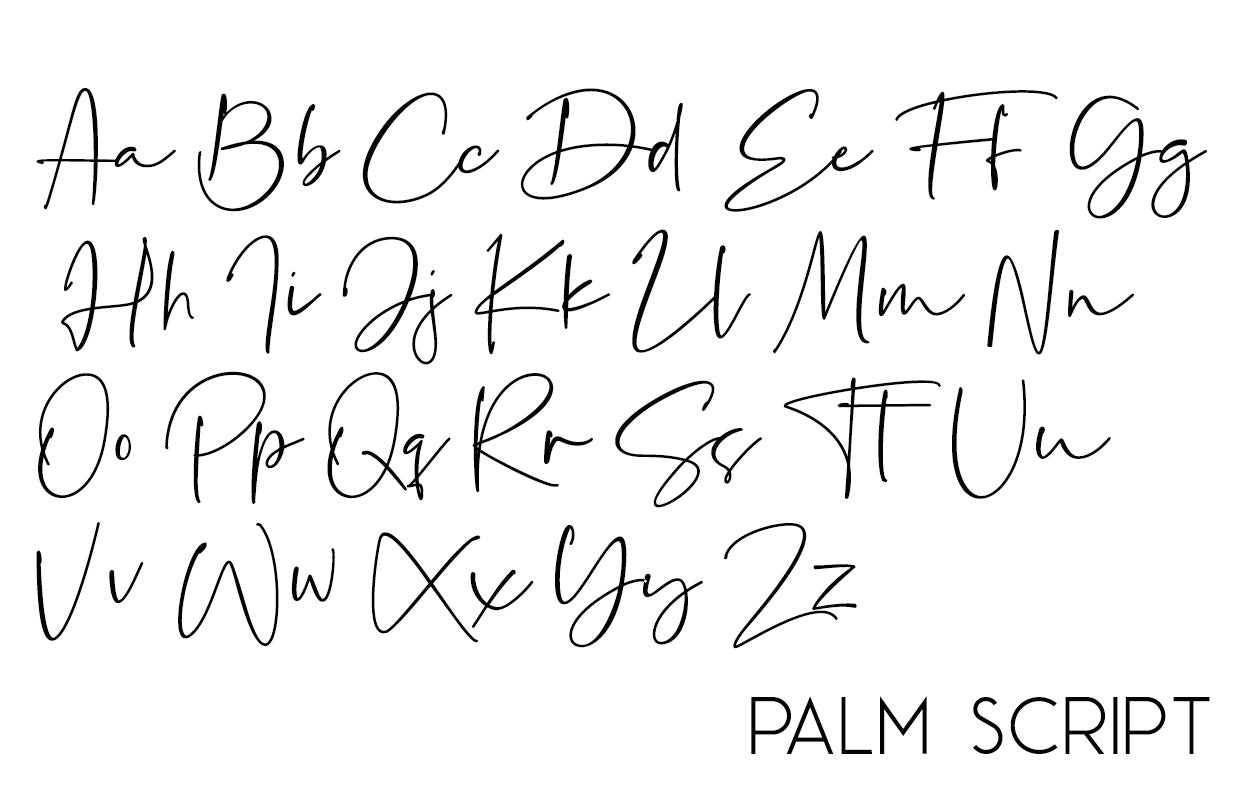 Aa Bb Cc Dd Ee Ff Gg
Hh Ii Jj Kk Ll Mm Nn
Oo Pp Qq Rr Ss Tt Uu
Vv Ww Xx Yy Zz
PALM SCRIPT